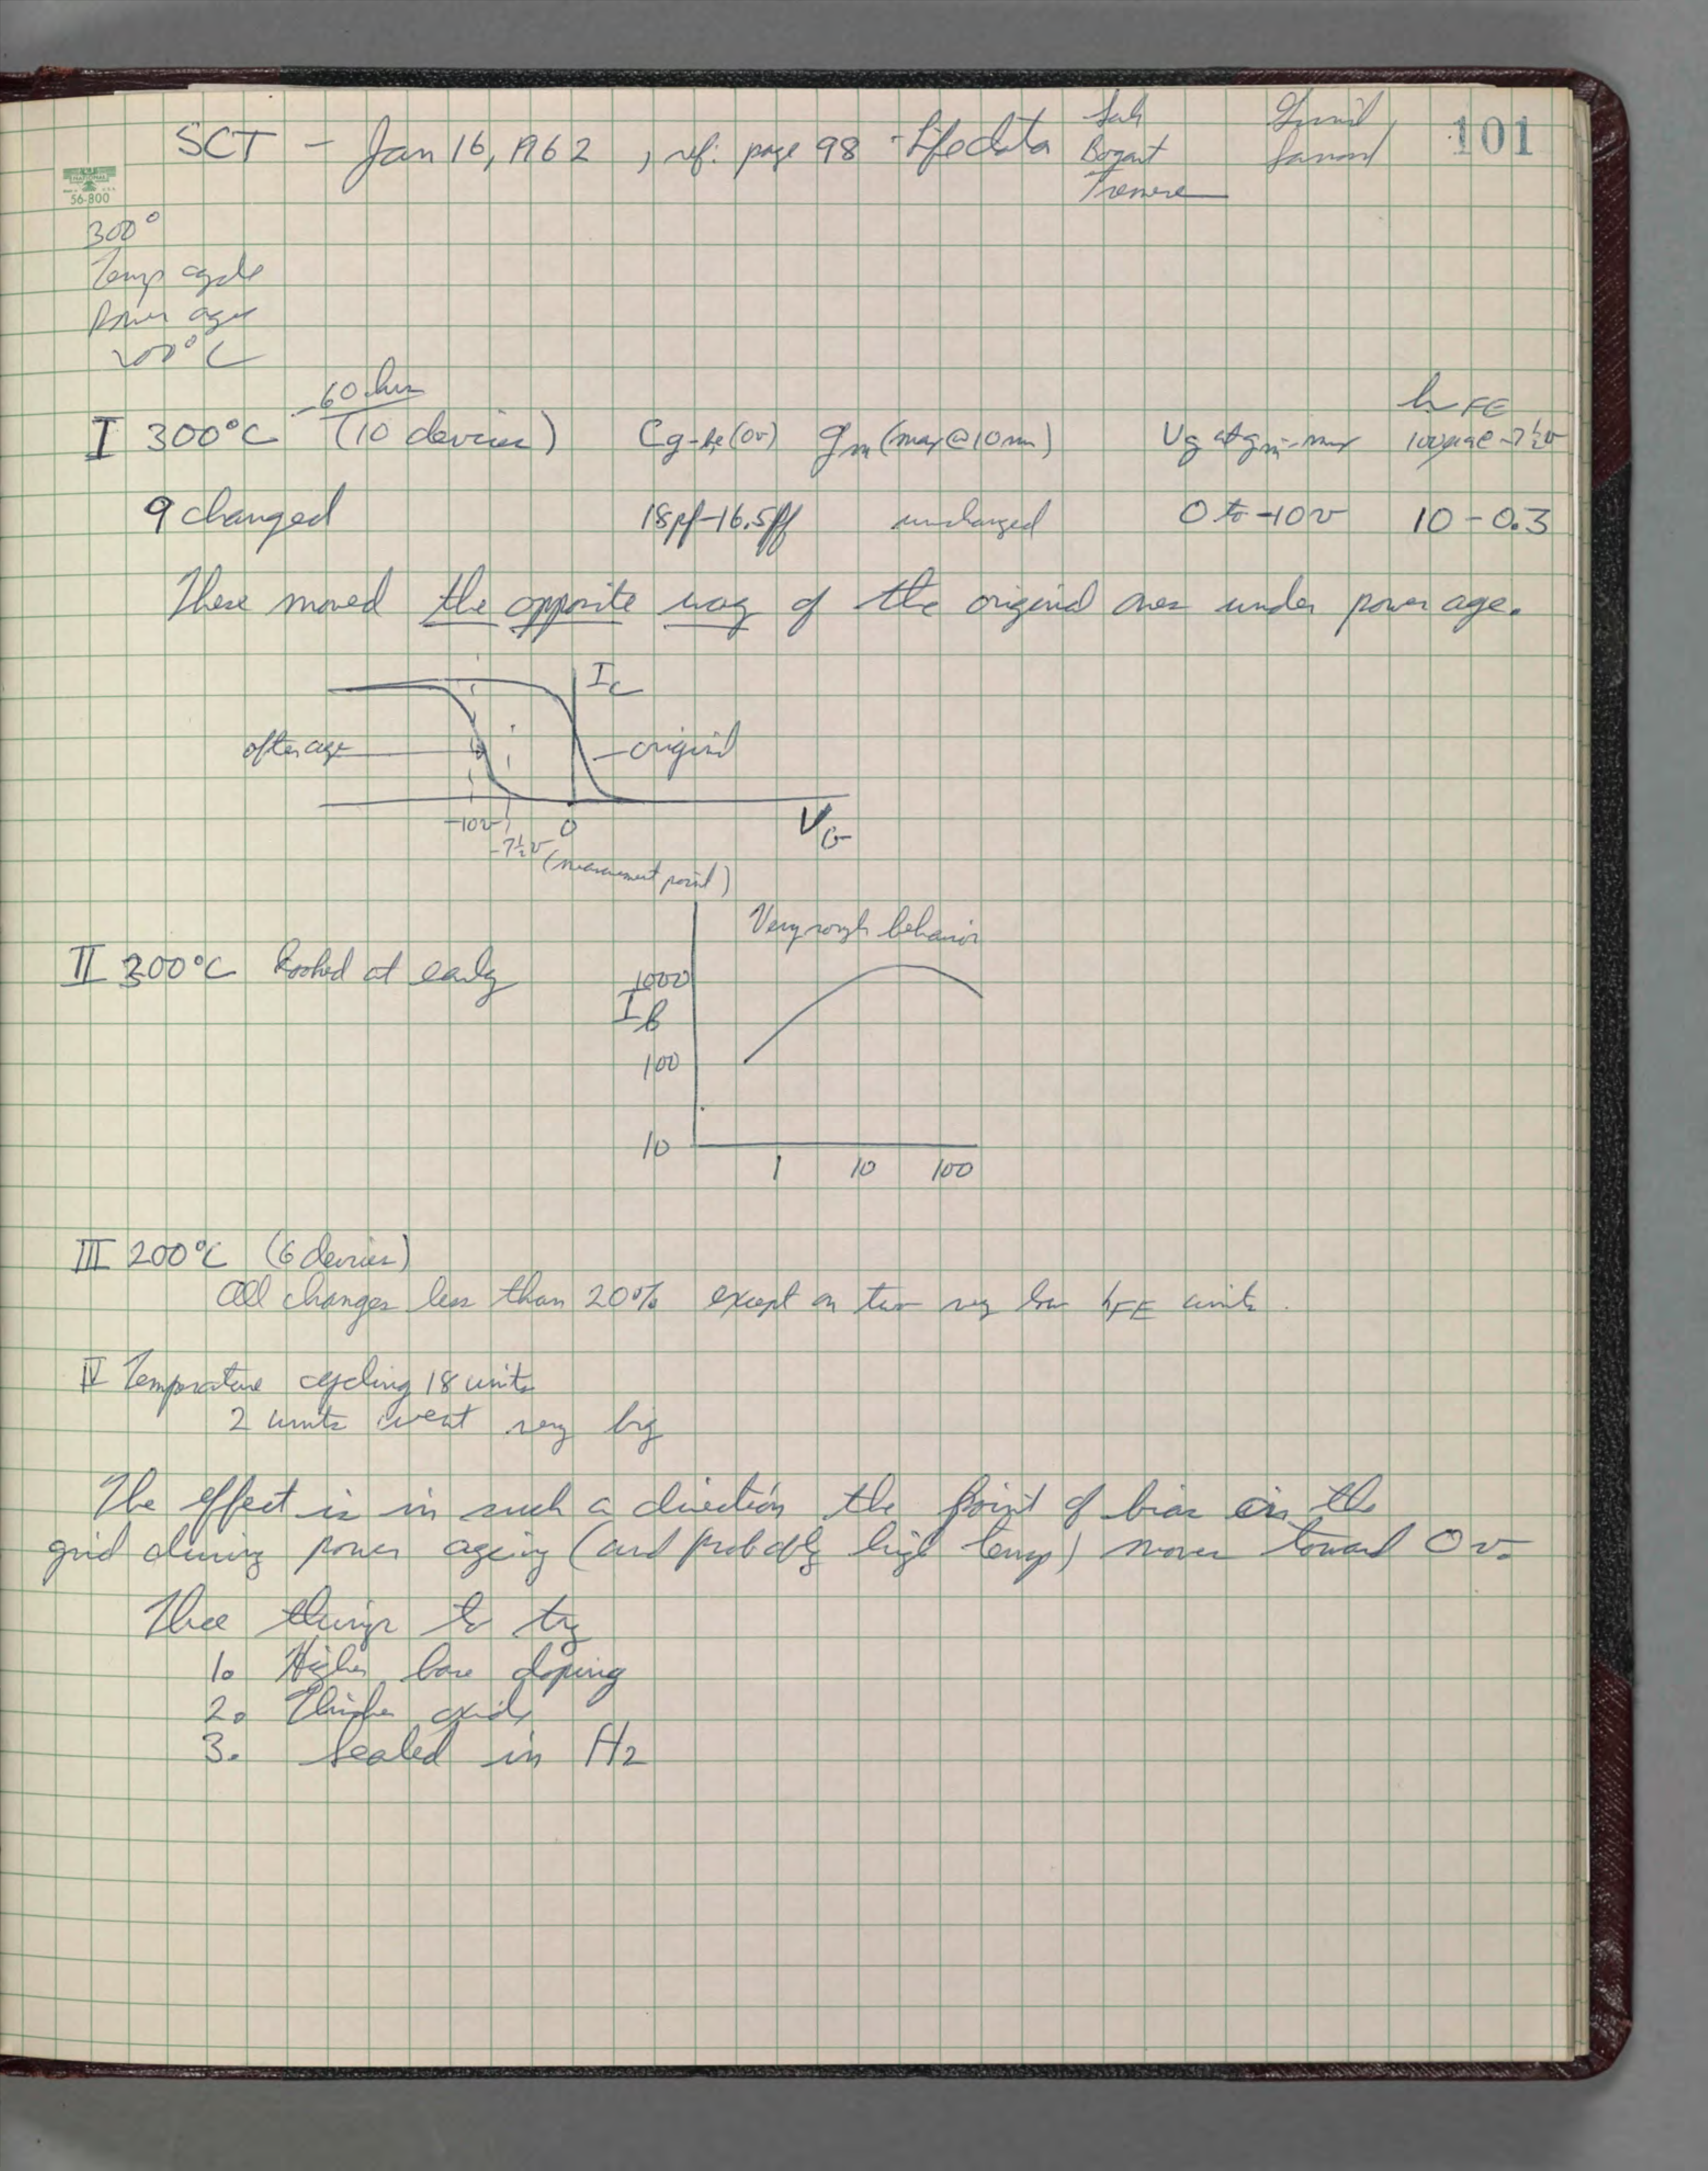 SCT - Jan 16, 1962, ref: page 98 - Life data
Sah
Bogart
Tremere
101
NATIONAL
56-800
300°
Temp cycle
Power age
200°C
60 hrs
I 300°C (10 devices) Cg-be(0v) gm (max @ 10 ma) Vg at gm-max hFE 100µa @ -7½v
9 changed 18pf-16.5pf unchanged 0 to -10v 10-0.3
These moved the opposite way of the original ones under power age.
IC
after age
original
-10v
0
VG
-7½v (measurement point)
Very rough behavior
II 300°C looked at early
1000
IB
100
10
1 10 100
III 200°C (6 devices)
All changes less than 20% except on two very low hFE units.
IV Temperature cycling 18 units
2 units went very big
The effect is in such a direction the point of bias on the
grid during power ageing (and probably high temp) moves toward 0v.
Three things to try
1. Higher base doping
2. Thicker oxide
3. Sealed in H2